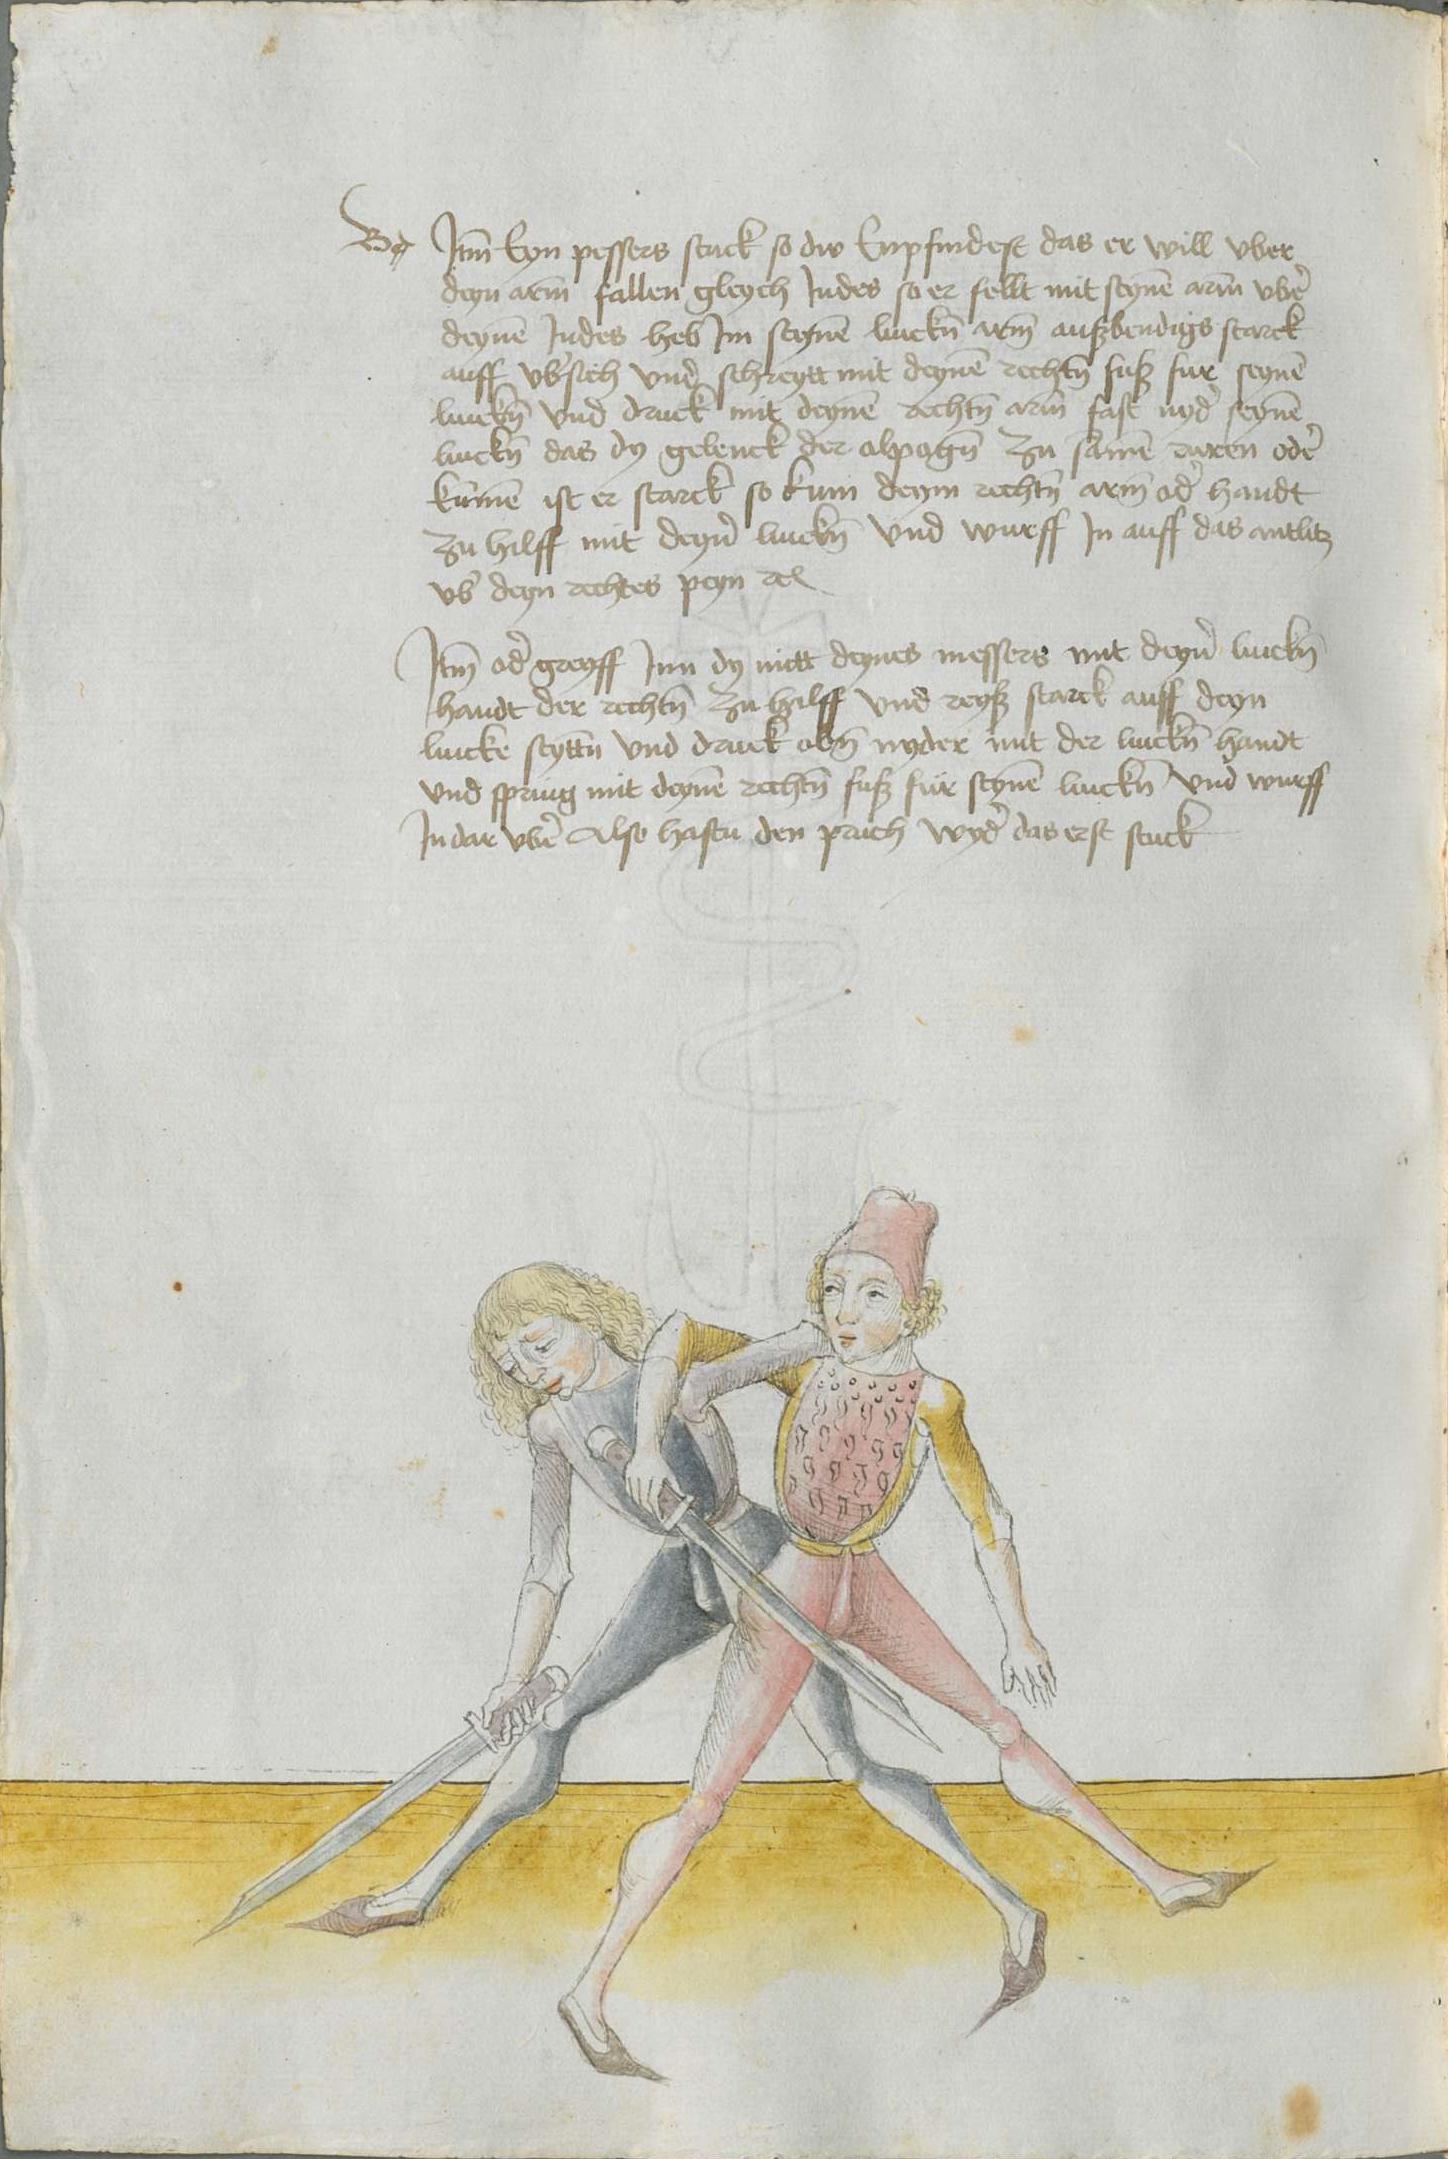 Itm̄ Eyn pessers stuck so dw Enpfindest das er will vber
deyn arm̄ fallen gleych Indes so er fellt mit seynē arm̄ vbe᷑
deynē Indes heb Im seynē linckn̄ arm̄ außbendigs starck
auff vb᷑sich vnd schreytt mit deynē rechtn̄ fuß fur seynē
linckn̄ vnd druck mit deynē rechtn̄ arm̄ fast nyd᷑ seynē
linckn̄ das dy gelenck der olpogn̄ zu sāmē ruren ode᷑
kūmē ist er starck so kum deym rechtn̄ arm̄ od᷑ handt
zu hilff mit deyn᷑ linckn̄ vnd wurff In auff das antlitz
vb᷑ deyn rechtes peyn rc̄
Itm̄ od᷑ greyff Inn dy mitt deynes messers mit deyn᷑ linckn̄
handt der rechtn̄ zu hilff vnd reyß starck auff deyn
lincke seyttn̄ vnd druck obn̄ nyder mit der linckn̄ handt
vnd spring mit deynē rechtn̄ fuß für seynē linckn̄ vnd wurff
In dar vbe᷑ Also hastu den pruch wyd᷑ das erst stuck